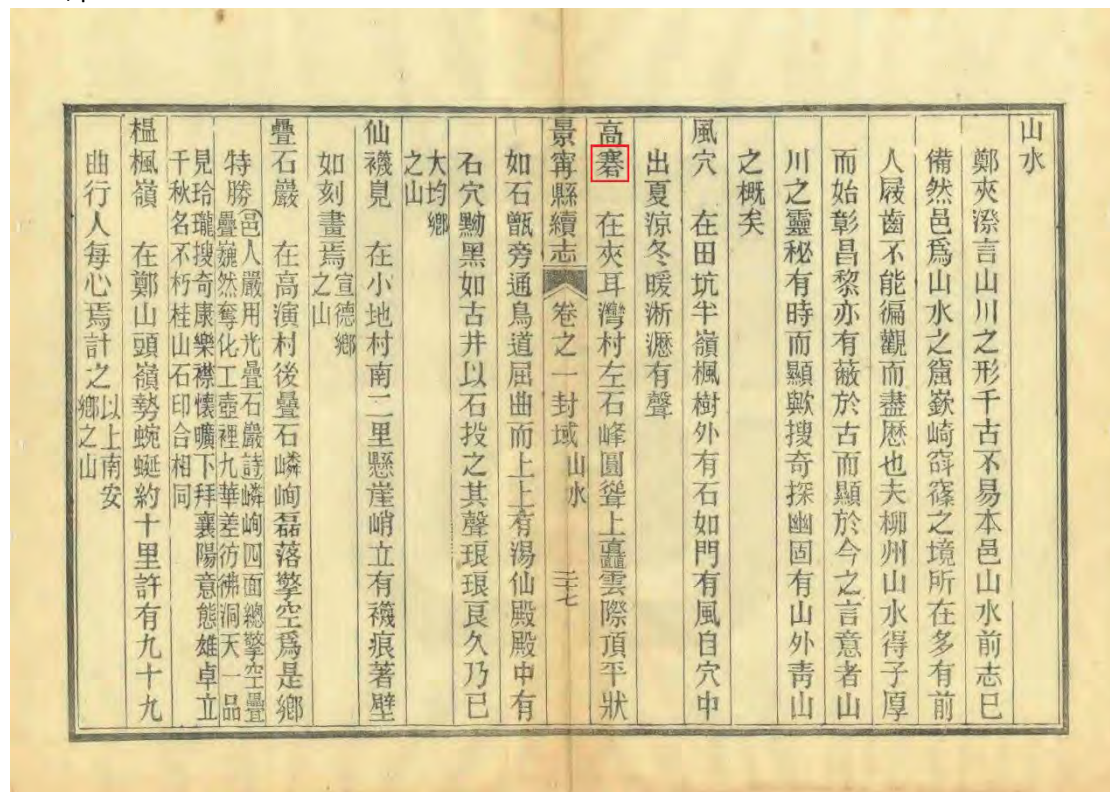 山水
鄭夾漈言山川之形千古不易本邑山水前志已
備然邑爲山水之窟嶔崎之境所在多有前
人屐齒不能徧觀而盡歴也夫柳州山水得子厚
而始彰昌黎亦有蔽於古而顯於今之言意者山
川之靈秘有時而顯歟搜奇探幽固有山外靑山
之概矣
風穴 在田坑半嶺楓樹外有石如門有風自穴中
出夏涼冬暖淅瀝有聲
高 在夾耳灣村左石峰圓聳上矗雲際頂平狀
景甯縣續志 卷之一封域 山水 三七
如石甑旁通鳥道屈曲而上上有湯仙殿殿中有
石穴黝黑如古井以石投之其聲琅琅良久乃已
大均鄉
之山
仙襪 在小地村南二里懸崖峭立有襪痕著壁
如刻畫焉宣德鄉
之山
疊石巖 在高演村後疊石嶙峋磊落擎空爲是鄉
特勝邑人嚴用光疊石巖詩嶙峋四面總擎空疊
疊巍然奪化工壺裡九華差彷彿洞天一品
見玲瓏搜奇康樂襟懷曠下拜襄陽意態雄卓立
千秋名不朽桂山石印合相同
榅楓嶺 在鄭山頭嶺勢蜿蜒約十里許有九十九
曲行人每心焉計之以上南安
鄉之山